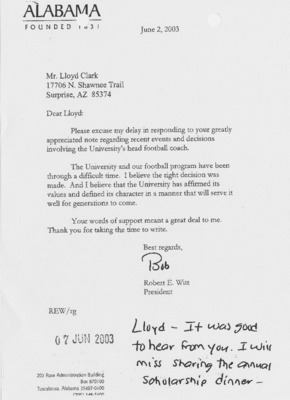 ALABAMA
FOUNDED 1831
June 2, 2003
Mr. Lloyd Clark
17706 N. Shawnee Trail
Surprise, AZ 85374
Dear Lloyd:
Please excuse my delay in responding to your greatly
appreciated note regarding recent events and decisions
involving the University's head football coach.
The University and our football program have been
through a difficult time. I believe the right decision was
made. And I believe that the University has affirmed its
values and defined its character in a manner that will serve it
well for generations to come.
Your words of support meant a great deal to me.
Thank you for taking the time to write.
Best regards,
Bob
Robert E. Witt
President
REW/rg
07 JUN 2003
Lloyd – It was good
to hear from you. I will
miss sharing the annual
scholarship dinner –
203 Rose Administration Building
Box 870100
Tuscaloosa, Alabama 35487-0100